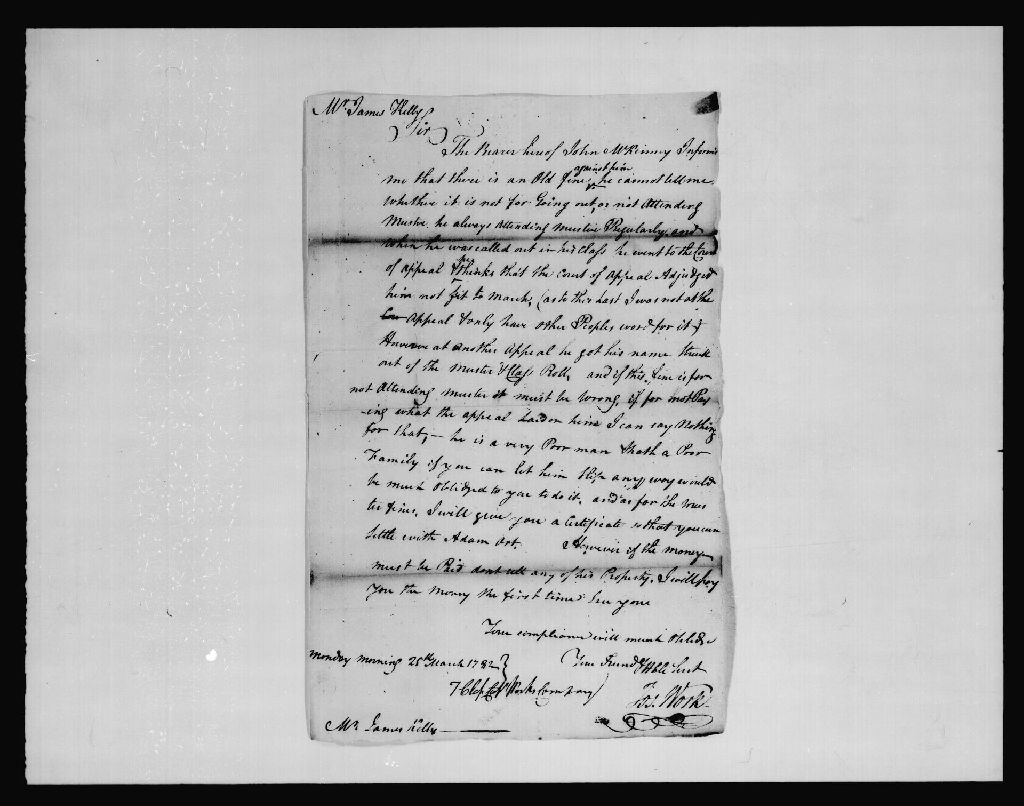 Mr. James Kelly
Sir
The Bearer hereof John McKinney Informs
me that there is an Old fine against him he cannot tell me
whether it is not for Going out, or not Attending
Muster. he always attending muster Regularly, and
when he was called out in his Class he went to the Court
of appeal & he thinks that the Court of appeal Adjudged
him not fit to march, (as to this Last I was not at the
Appeal & only have other Peoples word for it)
However at another Appeal he got his name struck
out of the Muster & Class Roll, and if this fine is for
not Attending muster it must be wrong, if for not Pay
-ing what the appeal Laid on him I can say Nothing
for that,— he is a very Poor man & hath a Poor
Family if you can let him Slip any way would
be much Oblidged to you to do it, and as for the mus
ter fines, I will give you a Certificate so that you can
Settle with Adam Ort. However if the money
must be Paid dont sell any of his Property. I will pay
you the money the first time I see you
Your compliance will much Oblidge
Monday morning 25th March 1782 } Your Friend & Hble Sert
7 Class Capt Works Company
Jos. Work
Mr James Kelly